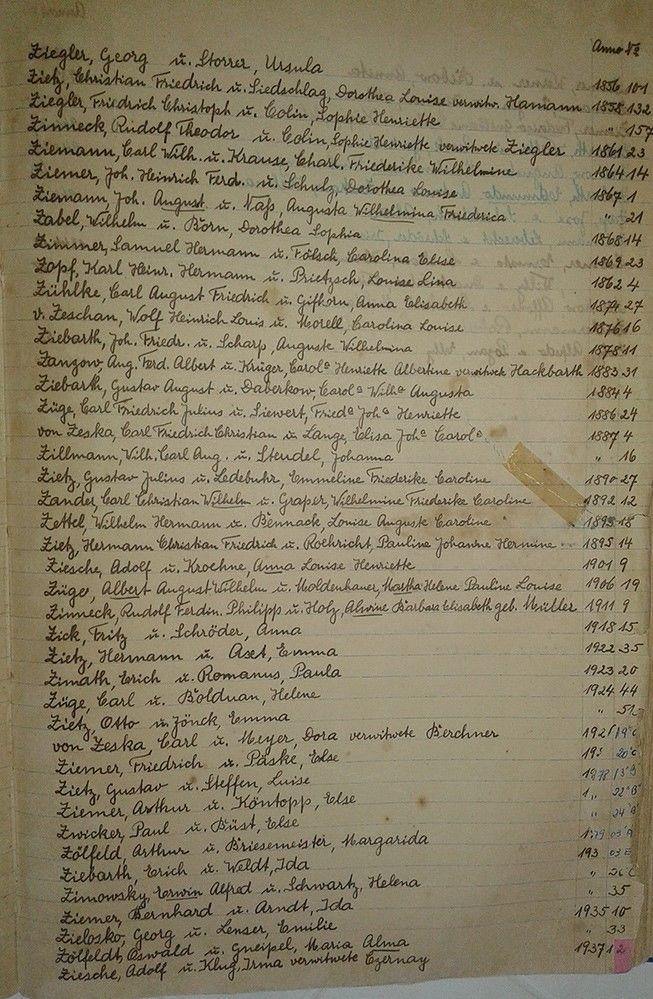 Anno No
Ziegler, Georg u. Storrer, Ursula
Zietz, Christian Friedrich u. Liedschlag, Dorothea Louise verwitw. Hamann 1856 101
Ziegler, Friedrich Christoph u. Colin, Sophie Henriette 1858 132
Zinneck, Rudolf Theodor u. Colin, Sophie Henriette verwitwete Ziegler " 157
Ziemann, Carl Wilh. u. Krause, Charl. Friederike Wilhelmine 1861 23
Ziemer, Joh. Heinrich Ferd. u. Schulz, Dorothea Louise 1864 14
Ziemann, Joh. August u. Vaß, Augusta Wilhelmina, Friederica 1867 1
Zabel, Wilhelm u. Born, Dorothea Sophia " 21
Zimmer, Samuel Hermann u. Fölsch, Carolina Elise 1868 14
Zopf, Karl Heinr. Hermann u. Prietzsch, Louise Lina 1869 23
Zühlke, Carl August Friedrich u. Gifhorn, Anna Elisabeth 1862 4
v. Zeschan, Wolf Heinrich Louis u. Morell, Carolina Louise 1874 27
Ziebarth, Joh. Friedr. u. Scharf, Auguste Wilhelmina 1876 16
Zangow, Aug. Ferd. Albert u. Krüger, Carola Henriette Albertine verwitwete Hackbarth 1878 11
Ziebarth, Gustav August u. Daberkow, Carola Wilha Augusta 1883 31
Züge, Carl Friedrich Julius u. Siewert, Frieda Joha Henriette 1884 4
von Zeska, Carl Friedrich Christian u. Lange, Elisa Joha Carola 1886 24
Zillmann, Wilh. Carl Aug. u. Stendel, Johanna 1887 4
Zietz, Gustav Julius u. Ledebuhr, Emmeline Friederike Caroline " 16
Zander, Carl Christian Wilhelm u. Graper, Wilhelmine Friederike Caroline 1890 27
Zettel, Wilhelm Hermann u. Bennack, Louise Auguste Caroline 1892 12
Zietz, Hermann Christian Friedrich u. Roehricht, Pauline Johanne Hermine 1893 18
Ziesche, Adolf u. Kroehne, Anna Louise Henriette 1895 14
Züge, Albert August Wilhelm u. Moldenhauer, Martha Helene Pauline Louise 1901 9
Zinneck, Rudolf Ferdin. Philipp u. Holz, Alwine Barbara Elisabeth geb. Müller 1906 19
Zick, Fritz u. Schröder, Anna 1911 9
Zietz, Hermann u. Axt, Emma 1918 15
Zimath, Erich u. Romanus, Paula 1922 35
Züge, Carl u. Bolduan, Helene 1923 20
Zietz, Otto u. Jönck, Emma 1924 44
von Zeska, Carl u. Meyer, Dora verwitwete Berchner " 51
Ziemer, Friedrich u. Paske, Else
Zietz, Gustav u. Steffen, Luise
Ziemer, Arthur u. Köntopp, Else
Zwicker, Paul u. Büst, Else
Zölfeld, Arthur u. Briesemeister, Margarida
Ziebarth, Erich u. Weldt, Ida
Zimowsky, Erwin Alfred u. Schwartz, Helena
Ziemer, Bernhard u. Arndt, Ida " 35
Zielosko, Georg u. Lenser, Emilie 1935 10
Zölfeldt, Oswald u. Gneipel, Maria Alma " 33
Ziesche, Adolf u. Klug, Irma verwitwete Czernay 1937 12